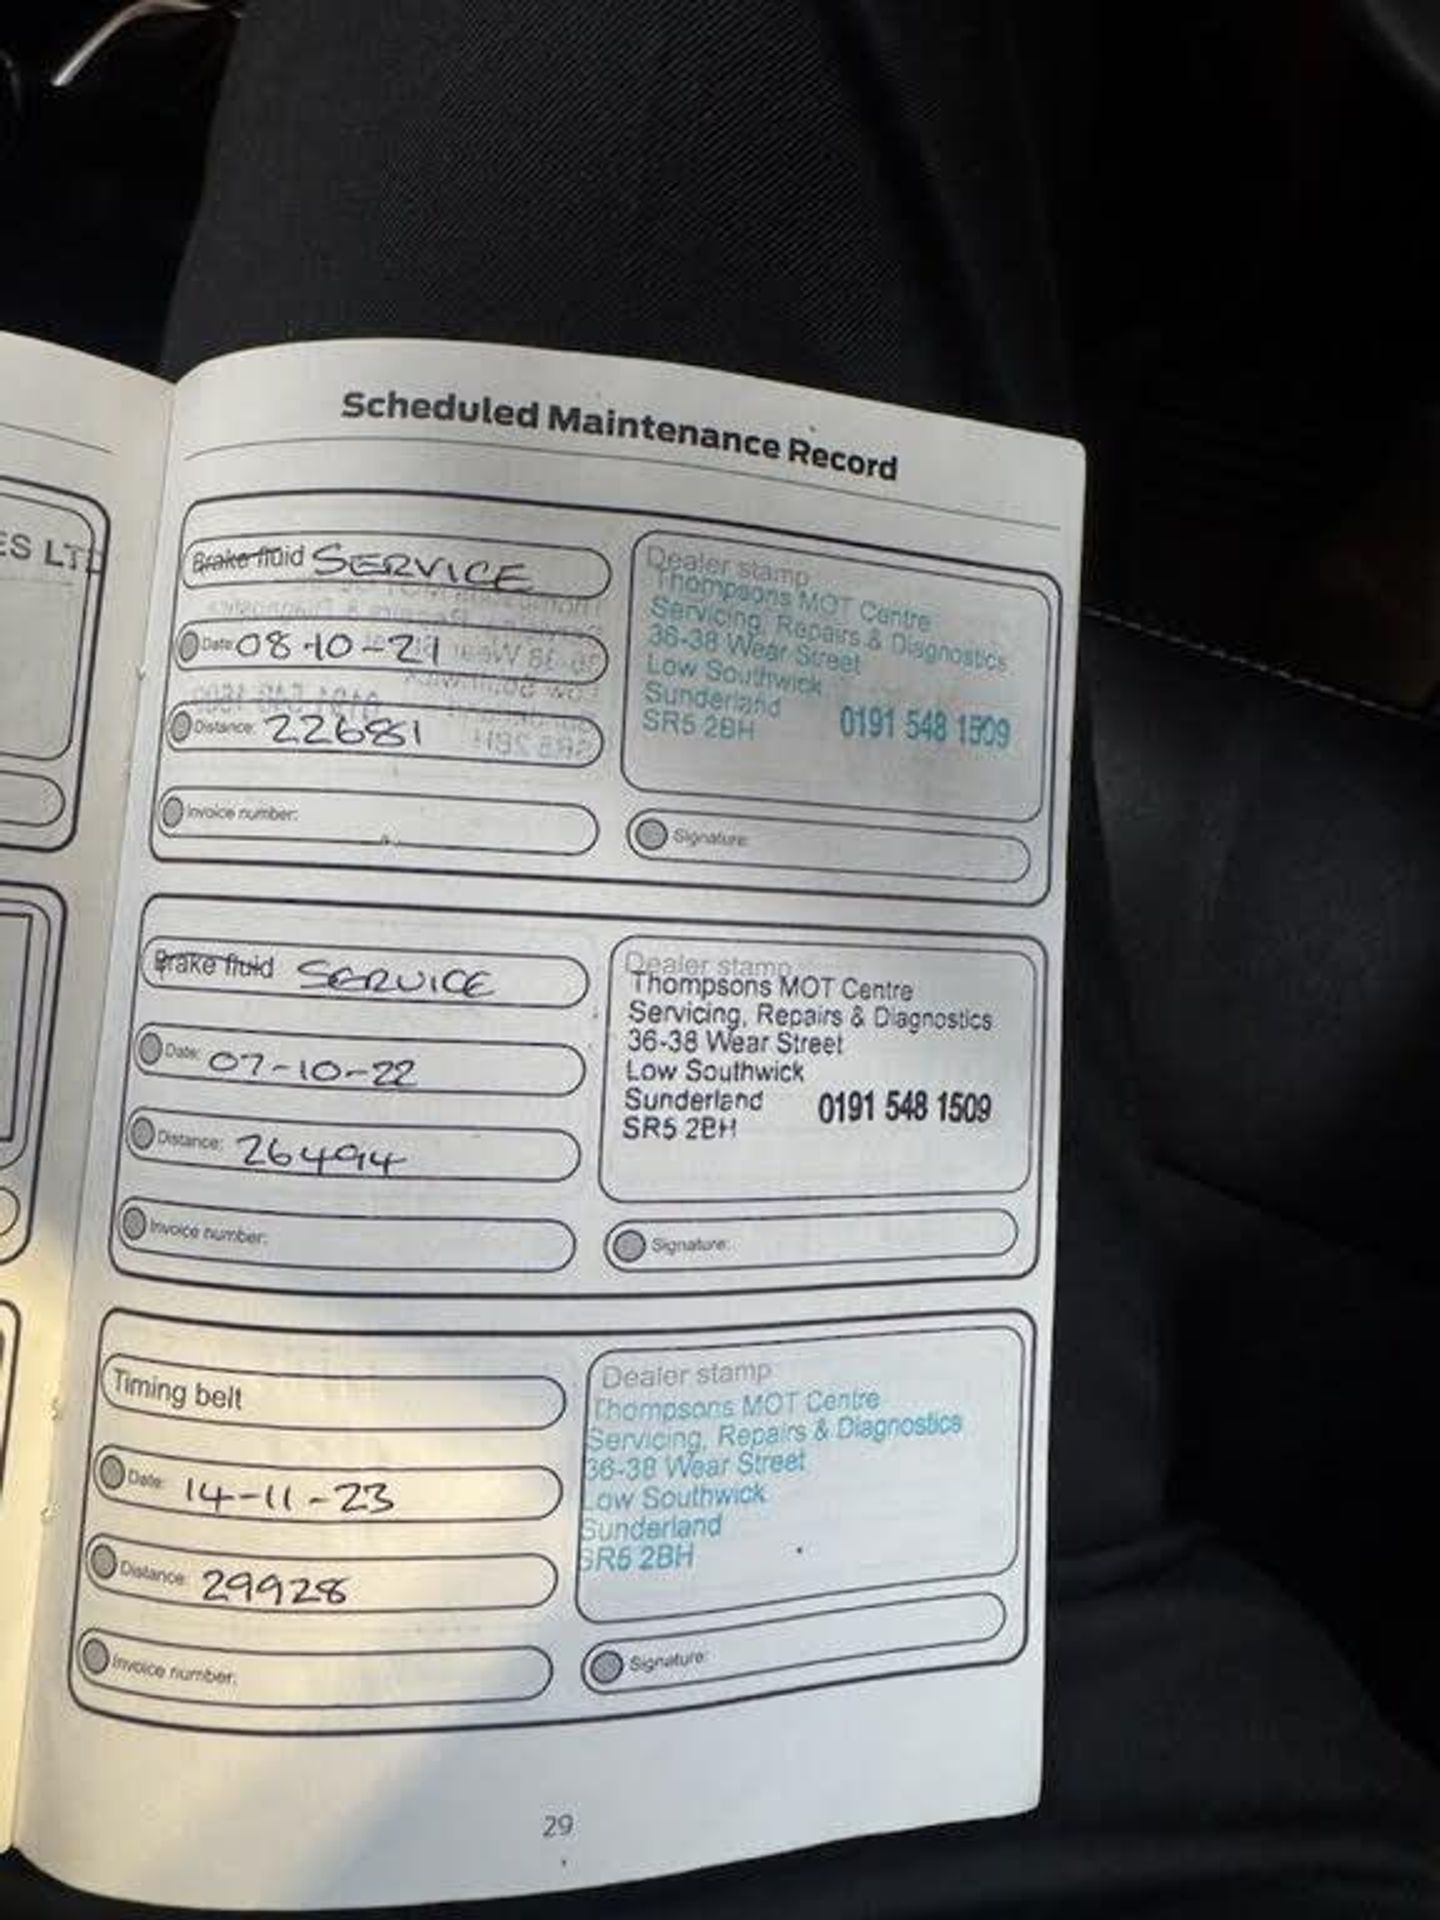 ES LTD
Scheduled Maintenance Record
Brake fluid SERVICE
Date: 08-10-21
Distance: 22681
Invoice number:
Dealer stamp
Thompsons MOT Centre
Servicing, Repairs & Diagnostics
36-38 Wear Street
Low Southwick
Sunderland 0191 548 1509
SR5 2BH
Signature:
Brake fluid SERVICE
Date: 07-10-22
Distance: 26494
Invoice number:
Dealer stamp
Thompsons MOT Centre
Servicing, Repairs & Diagnostics
36-38 Wear Street
Low Southwick
Sunderland 0191 548 1509
SR5 2BH
Signature:
Timing belt
Date: 14-11-23
Distance: 29928
Invoice number:
Dealer stamp
Thompsons MOT Centre
Servicing, Repairs & Diagnostics
36-38 Wear Street
Low Southwick
Sunderland
SR5 2BH
Signature:
29